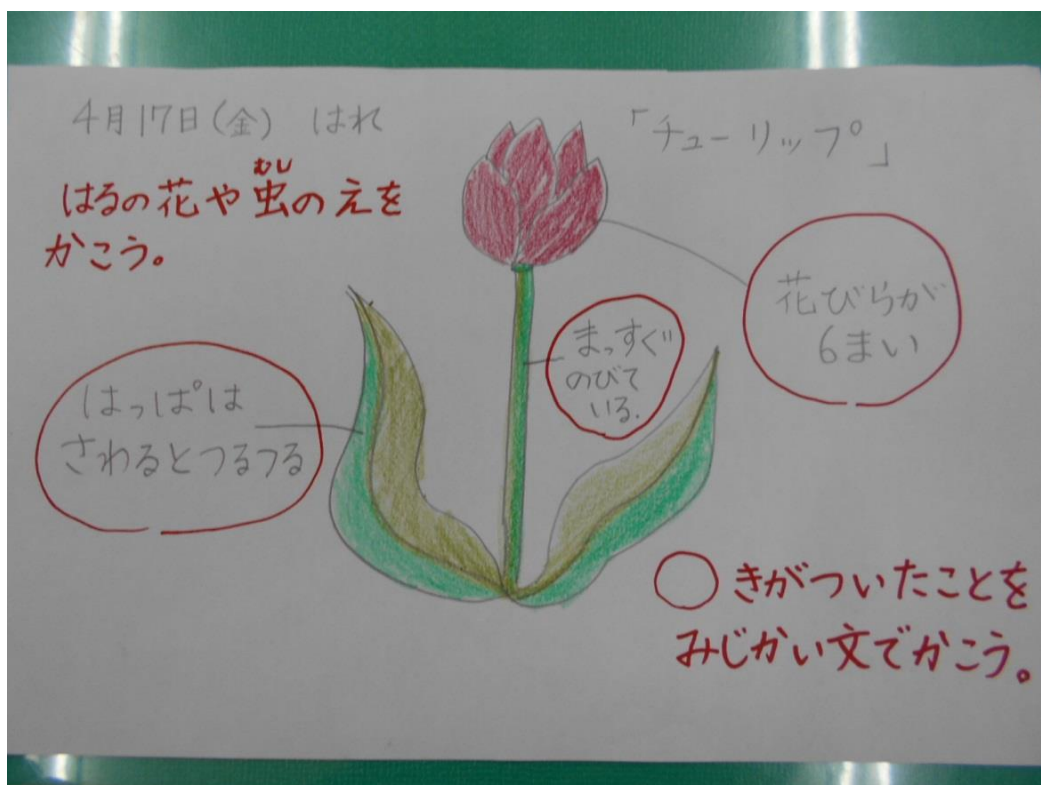 4月17日(金) はれ
「チューリップ」
むし
はるの花や虫のえを
かこう。
花びらが
6まい
まっすぐ
のびて
いる.
はっぱは
さわるとつるつる
○きがついたことを
みじかい文でかこう。